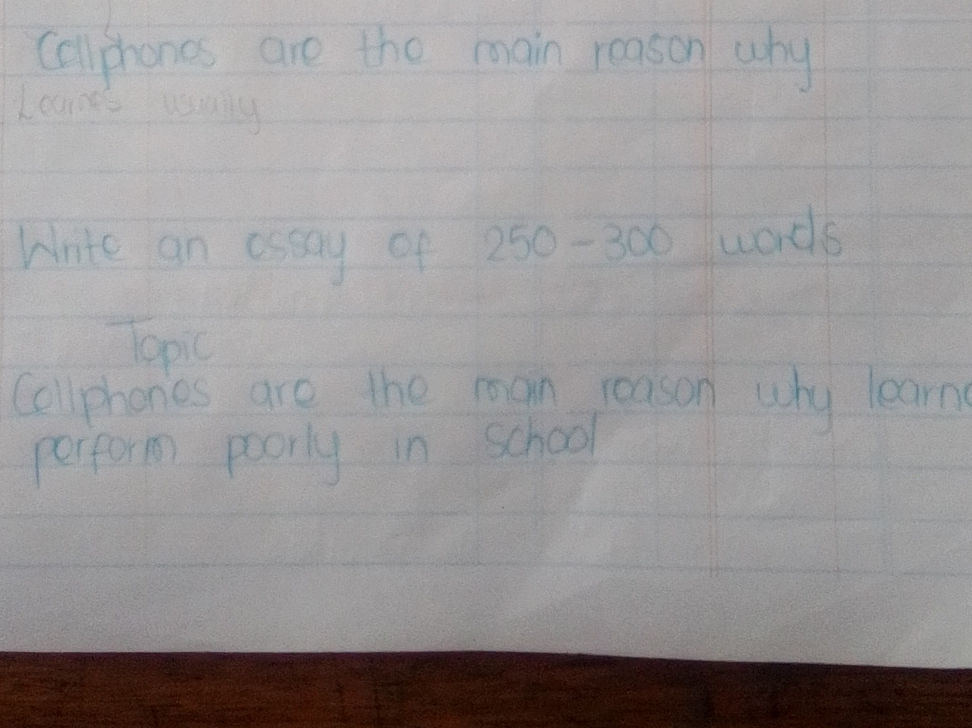 Cellphones are the main reason why
usually
Write an essay of 250-300 words
Topic
Cellphones are the main reason why learne
perform poorly in school